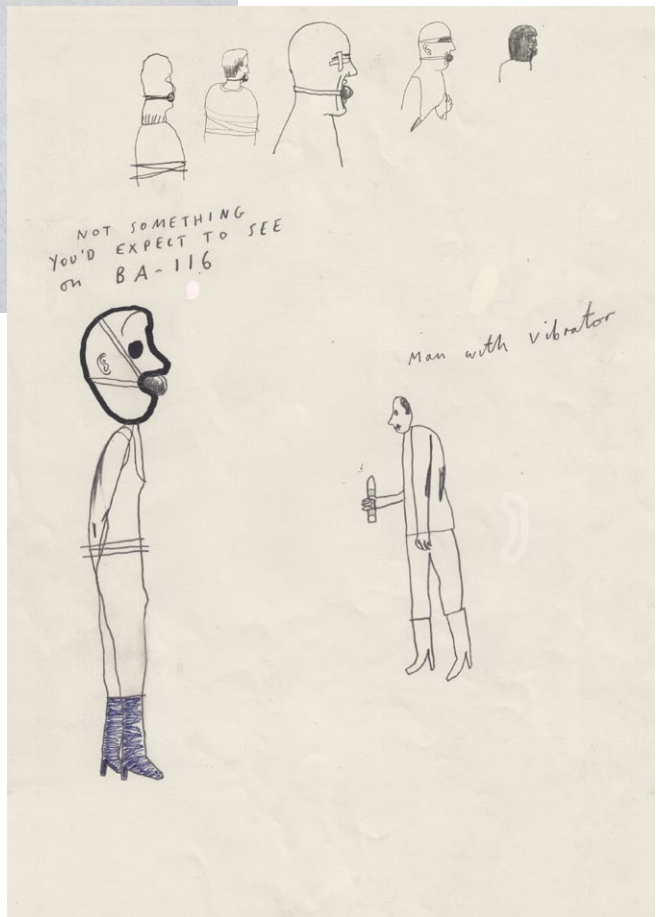 NOT SOMETHING
YOU'D EXPECT TO SEE
on BA-116
Man with vibrator